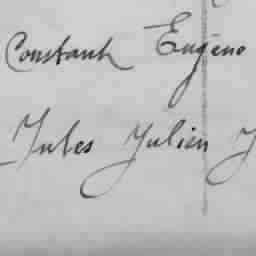 Constant Eugène
Jules Julien J